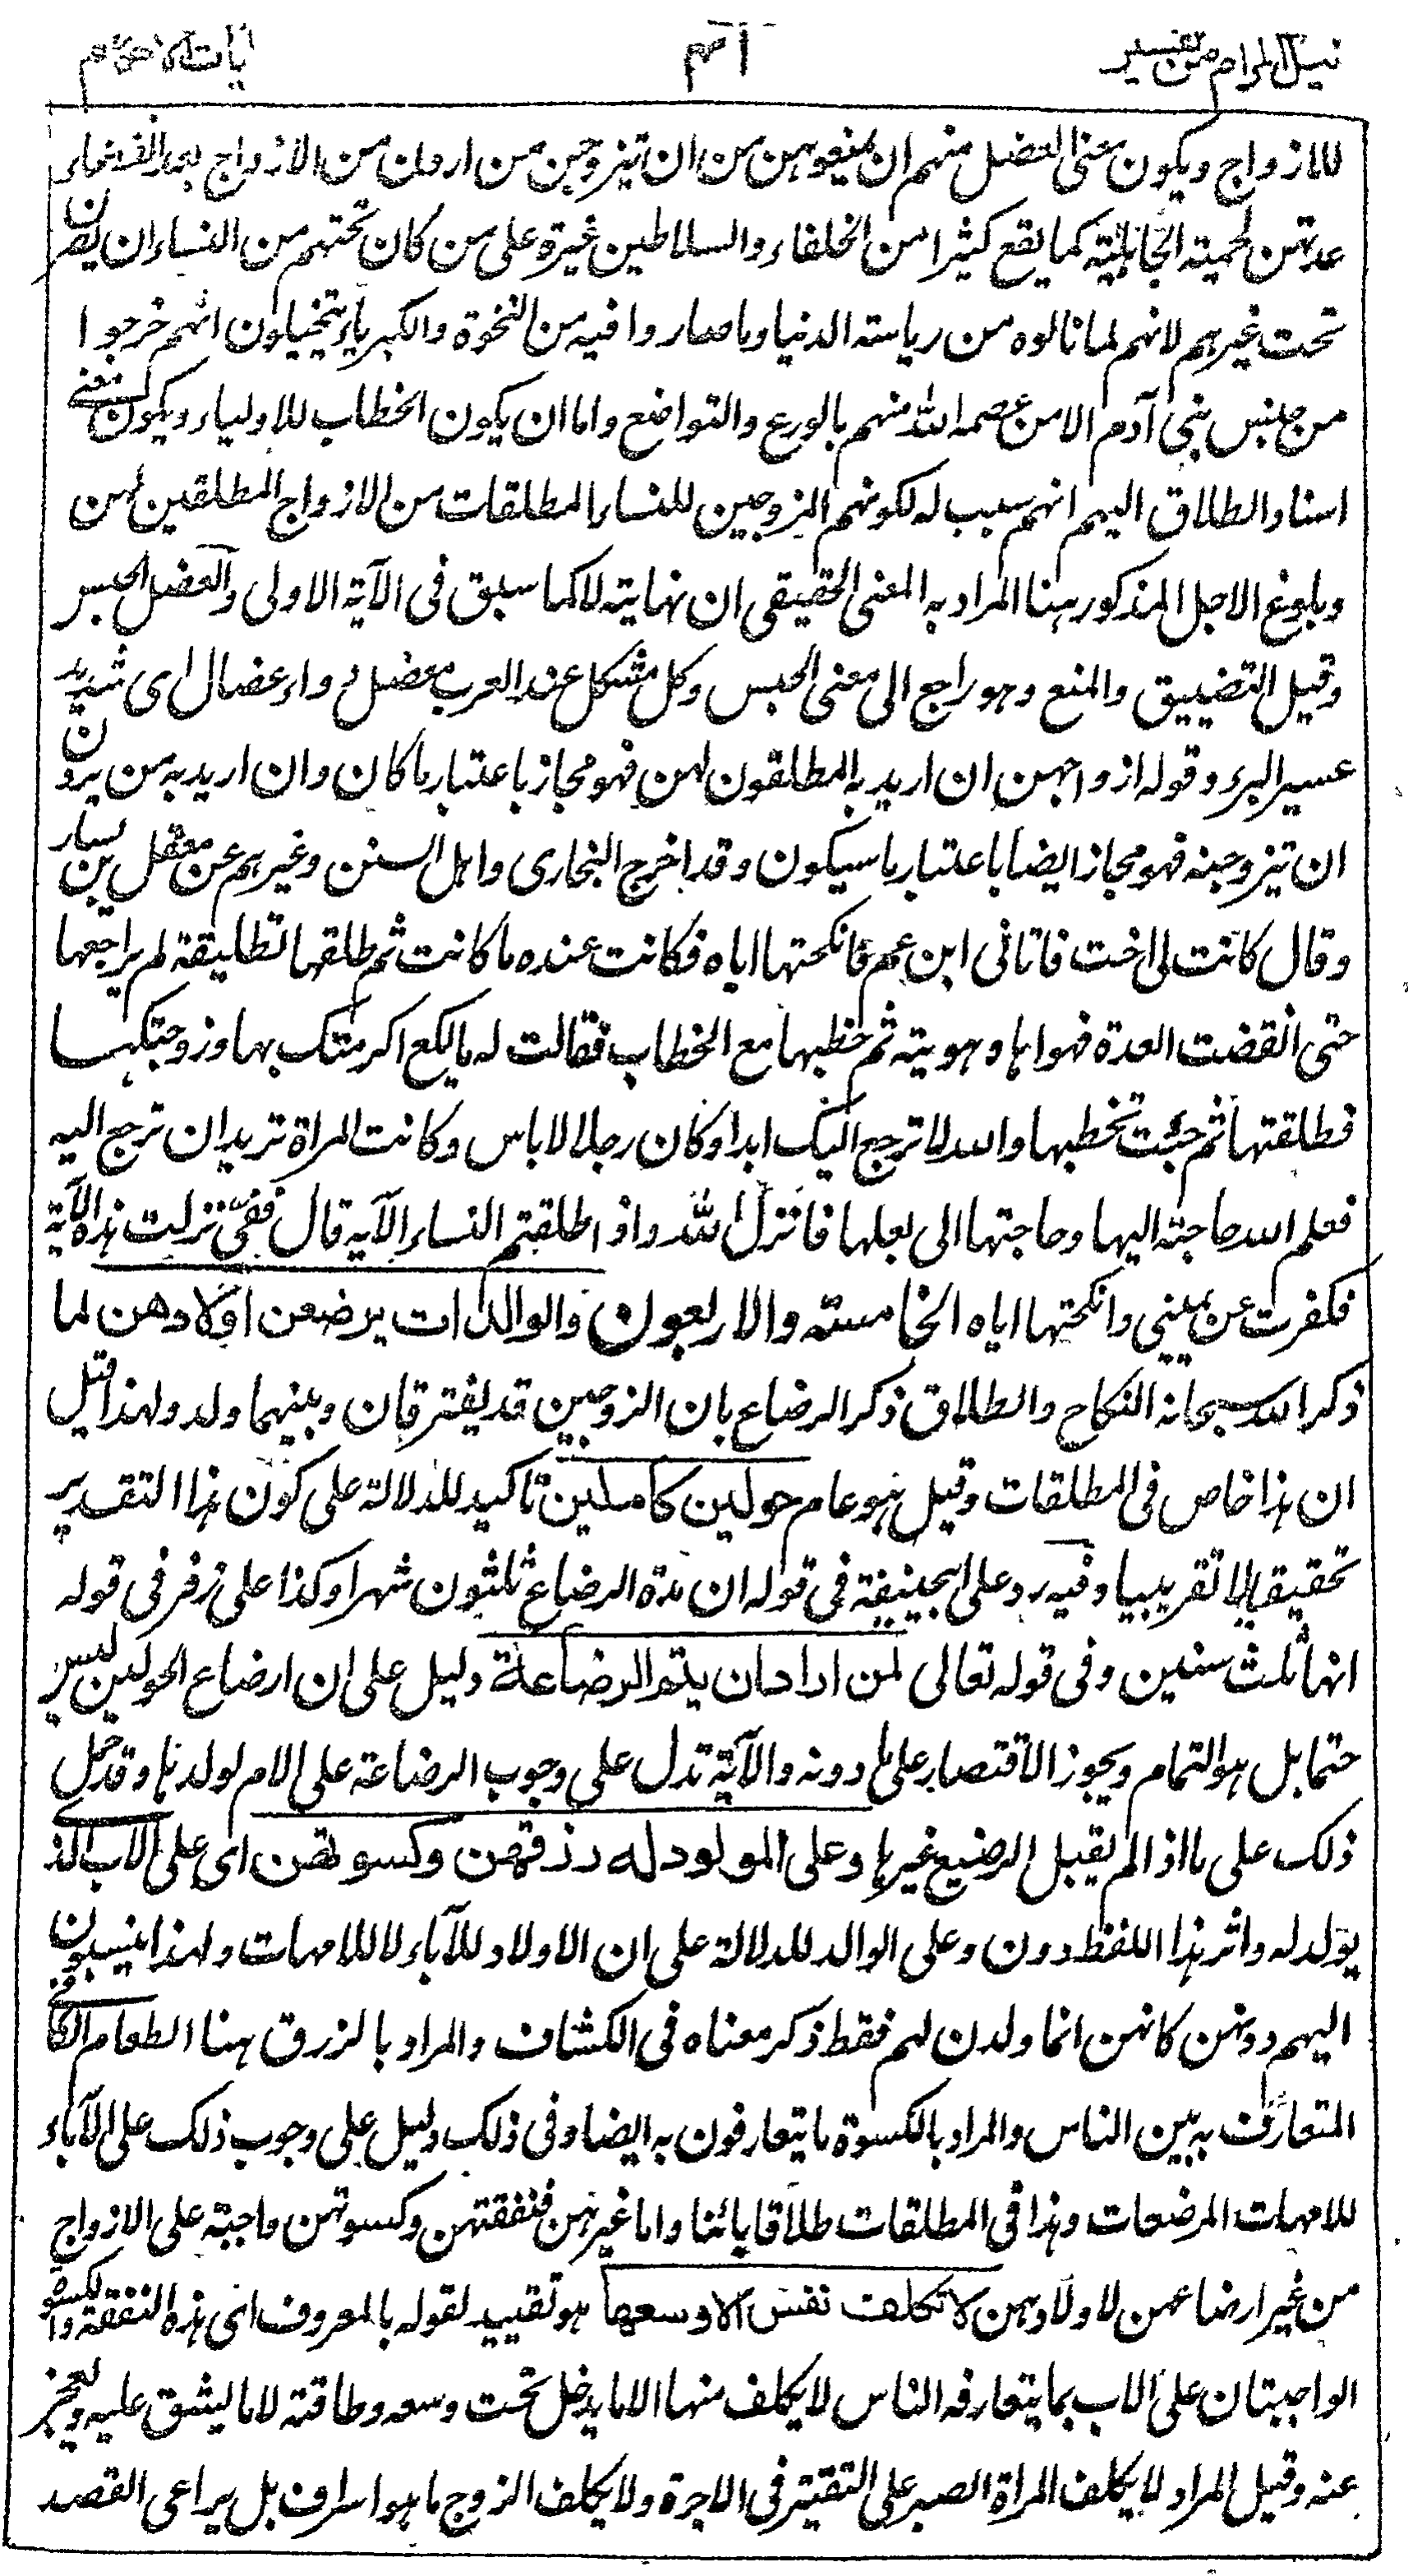 نيل المرام من تفسير
آيات الاحكام
للازواج ويكون معنى العضل منهم ان يمنعوهن من ان يتزوجن من اردن من الازواج بعد انقضاء
عدتهن لحمية الجاهلية كما يقع كثيرا من الخلفاء والسلاطين غيرة على من كان تحتهم من النساء ان يصرن
تحت غيرهم لانهم لما نالوه من رياسة الدنيا وما صاروا فيه من النخوة والكبرياء يتخيلون انهم خرجوا
من جنس بني آدم الا من عصمه الله منهم بالورع والتواضع واما ان يكون الخطاب للاولياء ويكون معنى
اسناد الطلاق اليهم انهم سبب له لكونهم المزوجين للنساء المطلقات من الازواج المطلقين لهن
وبلوغ الاجل المذكور هنا المراد به المعنى الحقيقي ان نهايته لا كما سبق في الآية الاولى والعضل الحبس
وقيل التضييق والمنع وهو راجع الى معنى الحبس وكل مشكل عند العرب معضل وداء عضال اى شديد
عسير البرء وقوله ازواجهن ان اريد به المطلقون لهن فهو مجاز باعتبار ما كان وان اريد به من يردن
ان يتزوجنه فهو مجاز ايضا باعتبار ما سيكون وقد اخرج البخارى واهل السنن وغيرهم عن معقل بن يسار
وقال كانت لى اخت فاتانى ابن عم فانكحتها اياه فكانت عنده ما كانت ثم طلقها تطليقة لم يراجعها
حتى انقضت العدة فهواها وهويته ثم خطبها مع الخطاب فقالت له يا لكع اكرمتك بها وزوجتكها
فطلقتها ثم جئت تخطبها والله لا ترجع اليك ابدا وكان رجلا لا باس وكانت المراة تريد ان ترجع اليه
فعلم الله حاجته اليها وحاجتها الى بعلها فانزل الله واذا طلقتم النساء الآية قال ففيّ نزلت هذه الآية
فكفرت عن يميني وانكحتها اياه الخامسة والاربعون والوالدات يرضعن اولادهن لما
ذكر الله سبحانه النكاح والطلاق ذكر الرضاع بان الزوجين قد يفترقان وبينهما ولد ولهذا قيل
ان هذا خاص في المطلقات وقيل هو عام حولين كاملين تاكيد للدلالة على كون هذا التقدير
تحقيقيا لا تقريبيا وفيه رد على ابيحنيفة في قوله ان مدة الرضاع ثلثون شهرا وكذا على زفر في قوله
انها ثلث سنين وفى قوله تعالى لمن اراد ان يتم الرضاعة دليل على ان ارضاع الحولين ليس
حتما بل هو التمام ويجوز الاقتصار على ما دونه والآية تدل على وجوب الرضاعة على الام لولدها وقد حمل
ذلك على ما اذا لم يقبل الرضيع غيرها وعلى المولود له رزقهن وكسوتهن اى على الاب الذى
يولد له واثر هذا اللفظ دون وعلى الوالد للدلالة على ان الاولاد للآباء لا للامهات ولهذا ينسبون
اليهم دونهن كانهن انما ولدن لهم فقط ذكر معناه في الكشاف والمراد بالرزق هنا الطعام الكافى
المتعارف به بين الناس والمراد بالكسوة ما يتعارفون به ايضا وفى ذلك دليل على وجوب ذلك على الآباء
للامهات المرضعات وهذا في المطلقات طلاقا بائنا واما غيرهن فنفقتهن وكسوتهن واجبة على الازواج
من غير ارضاعهن لاولادهن لا تكلف نفس الا وسعها هو تقييد لقوله بالمعروف اى هذه النفقة والكسوة
الواجبتان على الاب بما يتعارفه الناس لا يكلف منها الا ما يدخل تحت وسعه وطاقته لا ما يشق عليه ويعجز
عنه وقيل المراد لا يكلف المراة الصبر على التقتير في الاجرة ولا يكلف الزوج ما هو اسراف بل يراعى القصد